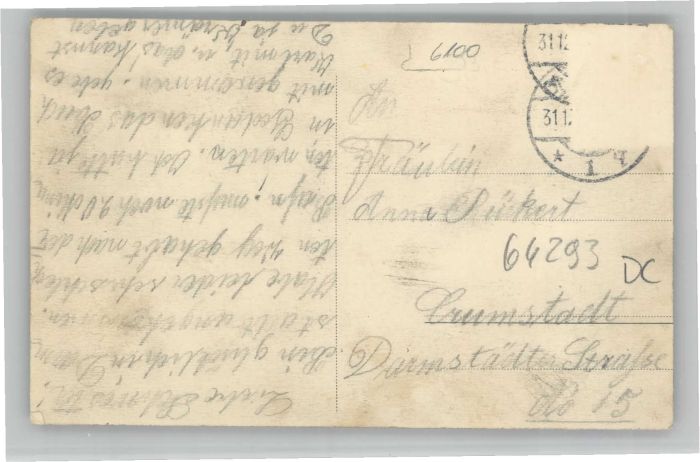 Liebe Schwester!
Bin glücklich in Darm
stadt angekommen.
Habe leider schlech
ten Weg gehabt nach der
Bahn, mußte noch 20
ten warten. Ich hatte ja
in Gedanken das Buch
mit genommen. gebe es
Karl mit, u. das kannst
Du ja Krämer geben
6100
An
Fräulein
Anna Rückert
64293
DC
Crumstadt
Darmstädter Straße
No 15
31.12
31.12
* 1 4